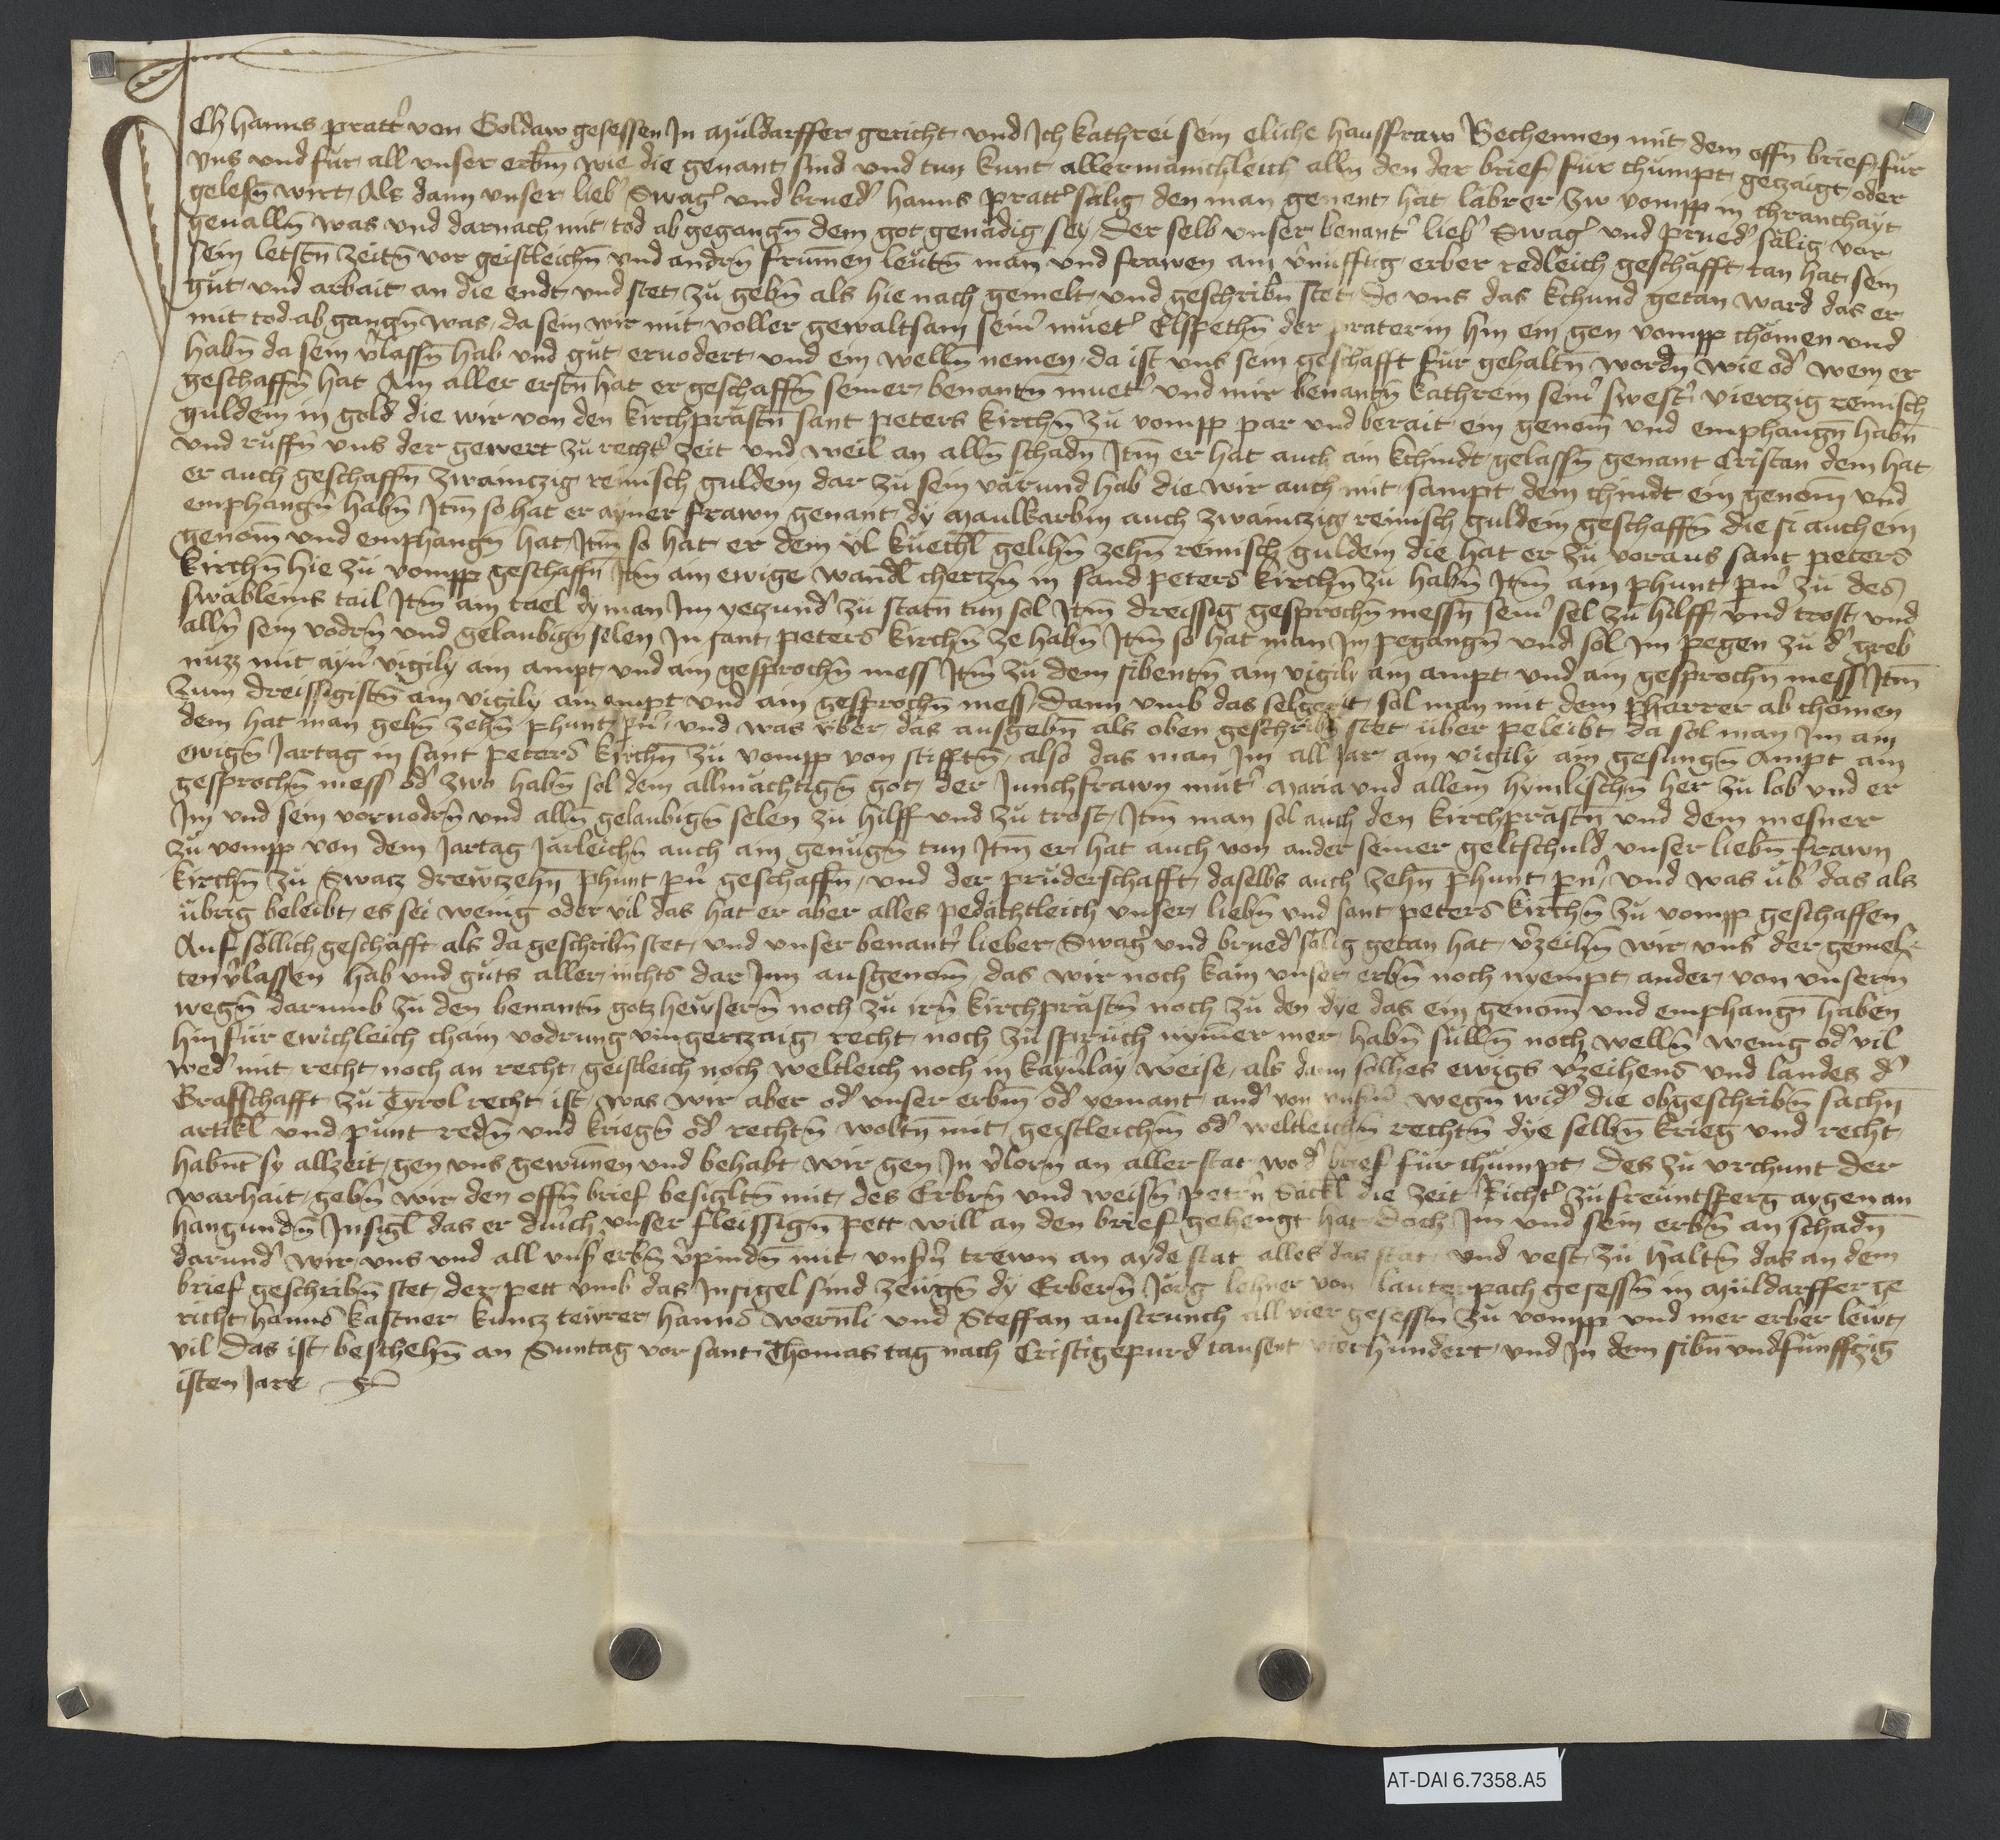 Ich hanns pratt' von Goldaw gesessen Jn Müldarffer gericht und Jch kathrei sein eliche haussfraw Bechennen mit dem offn̄ brief für
uns und für all unser erbm̄ wie die genant sind und tun kunt allermänichleich alln̄ den der brief für chumpt geczaigt oder
gelesn̄ wirt Als dann unser lieb' Swag' und brued' hanns pratt' sälig den man genent hat labrer zw vomp in chranchayt
geualln̄ was und darnach mit tod ab gegangn̄ dem got genädig sey Der selb unser benant' lieb' Swag' und prued' sälig vor
sein letstn̄ zeitn̄ vor geistleichn̄ und andrn̄ frumēn leütn̄ man und frawen ain v'nüfftig erber redleich geschäfft tan hat sein
güt und arbait an die endt und stet zü gebn̄ als hie nach gemelt und geschribn̄ stet Do uns das kchund getan ward das er
mit tod ab gangn̄ was da sein wir mit voller gewaltsam sein' müet' Elspethn̄ der praterin hin ein gen vomp chömen und
habn̄ da sein v'lassn̄ hab und güt ervodert und ein welln̄ nemen da ist uns sein geschäfft für gehaltn̄ wordn̄ wie od' wem er
geschaffn̄ hat Am aller erstn̄ hat er geschaffn̄ seiner benantn̄ muet' und mir benantn̄ kathrein sein' swest' viertzig reinisch
guldein in gold die wir von den kirchprästn̄ sant peters kirchn̄ zü vomp par und berait ein genom̄ und emphangn̄ habn̄
und rüffn̄ uns der gewert zü recht' zeit und weil an alln̄ schadn̄ Jtm̄ er hat auch ain kchindt gelassn̄ genant Cristan dem hat
er auch geschaffn̄ zwaintzig reinisch guldein dar zü sein varund hab die wir auch mit sampt dem chindt ein genom̄ und
emphangn̄ habn̄ Jtm̄ so hat er ayner frawn genant dy Maulkarbin auch zwaintzig reinisch guldein geschaffn̄ die si auch ein
genom̄ und emphangn̄ hat Jtm̄ so hat er dem ul kuechl gelihn̄ zehn̄ reinisch guldein die hat er zü voraus sant peters
kirchn̄ hie zü vomp geschaffn̄ Jtm̄ ain ewige wandl chertzn̄ in sand peters kirchn̄ zü habn̄ Jtm̄ ain phunt pn̄' zü des
swableins tail Jtm̄ ain tael dy man Jm yeczund' zü statn̄ tun sol Jtm̄ dreissig gesprochn̄ messn̄ sein' sel zü hilff und trost und
alln̄ sein vodrn̄ und gelaubign̄ selen Jn sant peters kirchn̄ ze habn̄ Jtm̄ so hat man Jm pegangn̄ und sol Jm pegen zü d' greb
nüzz mit ayn' vigily ain ampt und ain gesprochn̄ mess Jtm̄ zü dem sibentn̄ ain vigily ain ampt und ain gesprochn̄ mess Jtm̄
zum dreissigistn̄ ain vigily ain ampt und ain gesprochn̄ mess Dann umb das selgerät sol man mit dem pharrer ab chömen
dem hat man gebn̄ zehn̄ phunt pn̄' und was über das ausgebn̄ als oben geschribn̄ stet über peleibt da sol man Jm ain
ewign̄ Jartag in sant peters kirchn̄ zü vomp von stifftn̄ also das man Jm all Jar ain vigily ain gesungn̄ Ampt ain
gesprochn̄ mess od' zwo habn̄ sol dem allmächtign̄ got der Junchfrawn müt' Maria und allem hymlischn̄ her zü lob und er
Jm und sein vorvodrn̄ und alln̄ gelaubign̄ selen zü hilff und zü trost Jtm̄ man sol auch den kirchprästn̄ und dem mesner
zü vomp von dem Jartag Järleichn̄ auch ain genügn̄ tun Jtm̄ er hat auch von ander seiner geltschuld unser liebn̄ frawn
kirchn̄ zü Swacz drewtzehn̄ phunt pn̄' geschaffn̄ und der prüderschafft daselbs auch zehn̄ phunt pn̄' und was üb' das als
übrig beleibt es sei wenig oder vil das hat er aber alles pedächtleich unser liebn̄ und sant peters kirchn̄ zü vomp geschaffen
Auf söllich geschäfft als da geschribn̄ stet und unser benant' lieber Swag' und brued' sälig getan hat v'zeihn̄ wir uns der gemel
ten v'lassen hab und güts aller nichts dar Jnn ausgenom̄ das wir noch kain unser erbn̄ noch nyempt ander von unsern
wegn̄ darumb zü den benantn̄ gotzhewsern̄ noch zü irn̄ kirchprästn̄ noch zü den dye das ein genom̄ und emphangn̄ haben
hin für ewichleich chain vodrung vingertzaig recht noch zü sprüch nym̄er mer habn̄ sülln̄ noch welln̄ wenig od' vil
wed' mit recht noch an recht geistleich noch weltleich noch in kayn'lay weise als dann sölhes ewigs v'zeihens und landes d'
Grafschafft zü Tyrol recht ist was wir aber od' unser erbm̄ od' yemant and' von unsn̄' wegn wid' die obgeschribn̄ sachn̄
artikl und punt redn̄ und kriegn̄ od' rechtn̄ woltn̄ mit geistleichm̄ od' weltleichm̄ rechtn̄ dye selbn̄ krieg und recht
habnt sy allzeit gen uns gewun̄en und behabt wir gen Jn v'lorn an aller stat wo d' brief für chümpt Des zü urchunt der
warhait gebn̄ wir den offn̄ brief besigltn̄ mit des Erbrn̄ und weisn̄ petern̄ Säckl die zeit Richt' zü freüntsperg aygen an
hangundn̄ Jnsigl das er durch unser fleissign̄ pett will an den brief gehengt hat doch Jm und sein erbn̄ an schadn̄
darund' wir uns und all uns' erbn̄ v'pindn̄ mit unsn̄' trewn an ayde stat alles das stät und vest zü haltn̄ das an dem
brief geschribn̄ stet der pett umb das Jnsigel sind zewgn̄ dy Erbern̄ Jörg lehner von lauterpach gesessn̄ in Müldarffer ge
richt hanns kastner kuncz tewrer hanns wernli und Steffan austrunch all vier gesessn̄ zü vomp und mer erber lewt
vil Das ist beschehn̄ an Suntag vor sant Thomas tag nach Cristigepurd tausent vierhundert und Jn dem sibn̄ undfünfftzig
isten Jare
AT-DAI 6.7358.A5